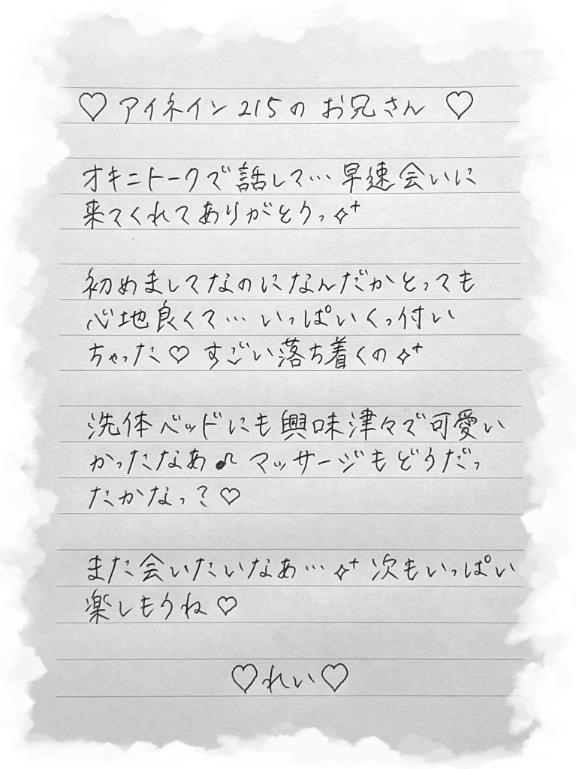 ♡ アイネイン 215の お兄さん ♡
オキニトークで話して… 早速会いに
来てくれてありがとうっ✧⁺
初めましてなのになんだかとっても
心地良くて… いっぱいくっ付い
ちゃった♡ すごい落ち着くの✧⁺
洗体ベッドにも興味津々で可愛い
かったなあ♫ マッサージもどうだっ
たかなっ?♡
また会いたいなあ…✧⁺ 次もいっぱい
楽しもうね♡
♡れい♡